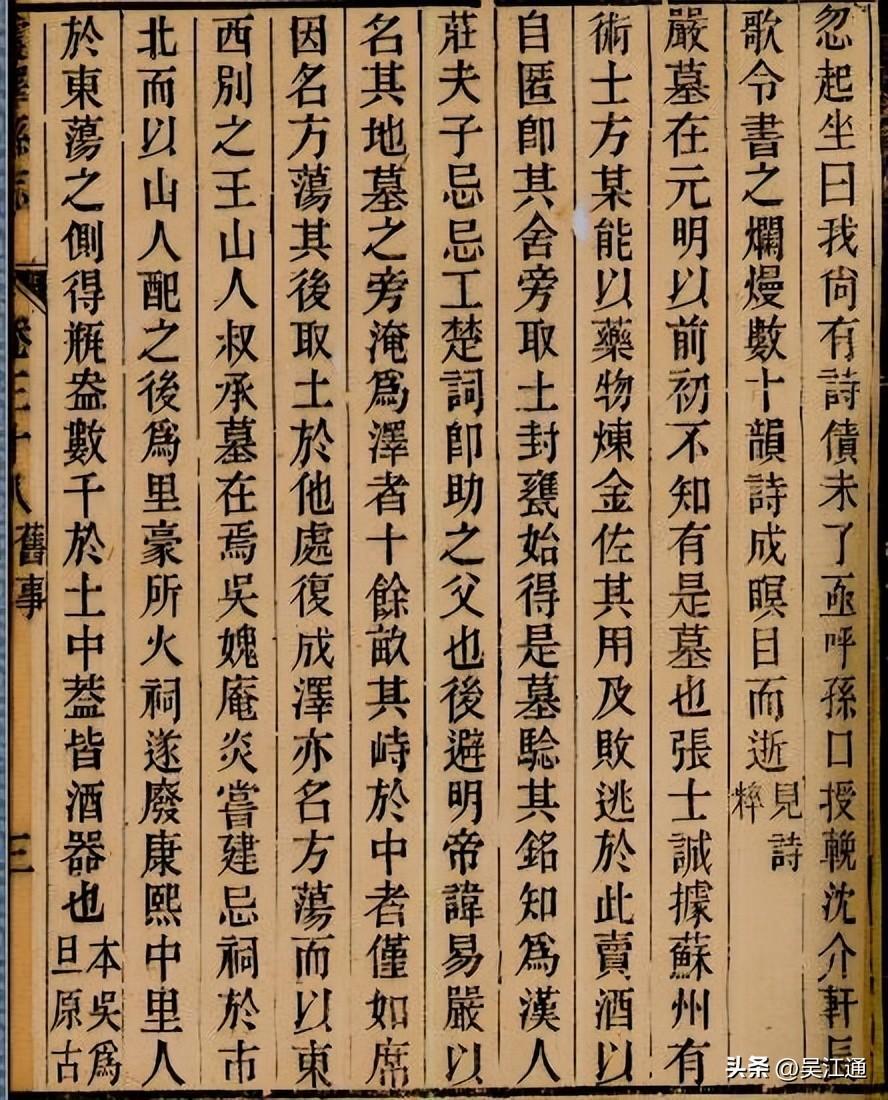 忽起坐曰我尙有詩債未了亟呼孫口授輓沈介軒長
歌令書之爛熳數十韻詩成瞑目而逝見詩粹
嚴墓在元明以前初不知有是墓也張士誠據蘇州有
術士方某能以藥物煉金佐其用及敗逃於此賣酒以
自匿卽其舍旁取土封甕始得是墓騐其銘知爲漢人
莊夫子忌忌工楚詞卽助之父也後避明帝諱易嚴以
名其地墓之旁淹爲澤者十餘畝其峙於中者僅如席
因名方蕩其後取土於他處復成澤亦名方蕩而以東
西別之王山人叔承墓在焉吳媿庵炎嘗建忌祠於市
北而以山人配之後爲里豪所火祠遂廢康熙中里人
於東蕩之側得瓶盎數千於土中葢皆酒器也本吳爲旦原古
震澤縣志
卷三十八
舊事
三
头条 @吴江通